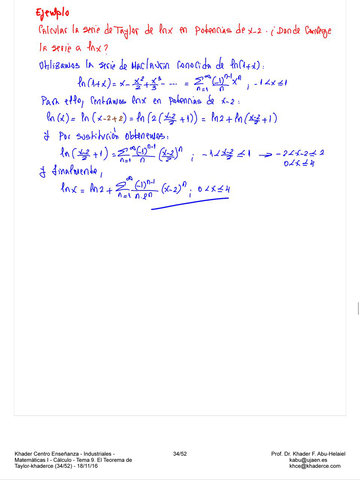 Ejemplo
Calcular la serie de Taylor de lnx en potencias de x-2. ¿Donde Converge
la serie a lnx?
Utilizamos la serie de MacLaurin conocida de ln(1+x):
ln(1+x) = x - x²/2 + x³/3 - ---- = ∑_{n=1}^{∞} (-1)^{n-1}/n xⁿ ; -1<x≤1
Para ello, centramos lnx en potencias de x-2:
ln(x) = ln(x-2+2) = ln(2((x-2)/2+1)) = ln2 + ln((x-2)/2+1)
y por sustitución obtenemos:
ln((x-2)/2+1) = ∑_{n=1}^{∞} (-1)^{n-1}/n ((x-2)/2)ⁿ ; -1<(x-2)/2≤1 → -2<x-2≤2
0<x≤4
y finalmente,
lnx = ln2 + ∑_{n=1}^{∞} (-1)^{n-1}/(n·2ⁿ) (x-2)ⁿ ; 0<x≤4
Khader Centro Enseñanza - Industriales - 34/52 Prof. Dr. Khader F. Abu-Helaiel
Matemáticas I - Cálculo - Tema 9. El Teorema de kabu@ujaen.es
Taylor-khaderce (34/52) - 18/11/16 khce@khaderce.com